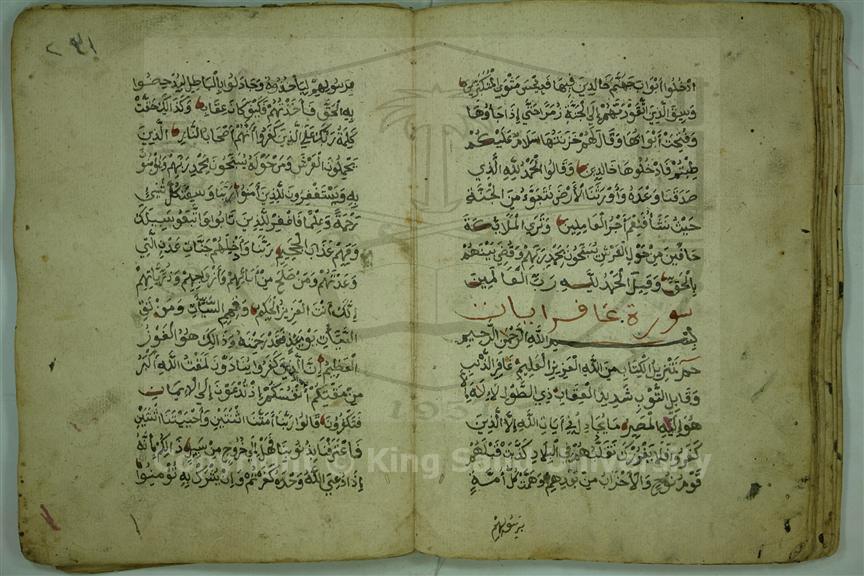 ادخلوا أبواب جهنم خالدين فيها فبئس مثوى المتكبرين
وسيق الذين اتقوا ربهم إلى الجنة زمرا حتى إذا جاؤها
وفتحت أبوابها وقال لهم خزنتها سلام عليكم
طبتم فادخلوها خالدين وقالوا الحمد لله الذي
صدقنا وعده وأورثنا الأرض نتبوء من الجنة
حيث نشاء فنعم أجر العاملين وترى الملائكة
حافين من حول العرش يسبحون بحمد ربهم وقضي بينهم
بالحق وقيل الحمد لله رب العالمين
سورة غافر ايات
بسم الله الرحمن الرحيم
حم تنزيل الكتاب من الله العزيز العليم غافر الذنب
وقابل التوب شديد العقاب ذي الطول لا إله إلا
هو إليه المصير ما يجادل في أيات الله إلا الذين
كفروا فلا يغررك تقلبهم في البلاد كذبت قبلهم
قوم نوح والأحزاب من بعدهم وهمت كل أمة
برسولهم
٢٣١
برسولهم ليأخذوه وجادلوا بالباطل ليدحضوا
به الحق فأخذتهم فكيف كان عقاب وكذالك حقت
كلمة ربك على الذين كفروا أنهم أصحاب النار الذين
يحملون العرش ومن حوله يسبحون بحمد ربهم ويؤمنون
به ويستغفرون للذين أمنوا ربنا وسعت كل شيء
رحمة وعلما فاغفر للذين تابوا واتبعوا سبيلك
وقهم عذاب الجحيم ربنا وأدخلهم جنات عدن التي
وعدتهم ومن صلح من أبائهم وأزواجهم وذرياتهم
إنك أنت العزيز الحكيم وقهم السيئات ومن تق
السيئات يومئذ فقد رحمته وذالك هو الفوز
العظيم إن الذين كفروا ينادون لمقت الله أكبر
من مقتكم أنفسكم إذ تدعون إلى الايمان
فتكفرون قالوا ربنا أمتنا اثنتين وأحييتنا اثنتين
فاعترفنا بذنوبنا فهل إلى خروج من سبيل ذالكم بأنه
إذا دعي الله وحده كفرتم وإن يشرك به تؤمنوا
Copyright © King Saud University